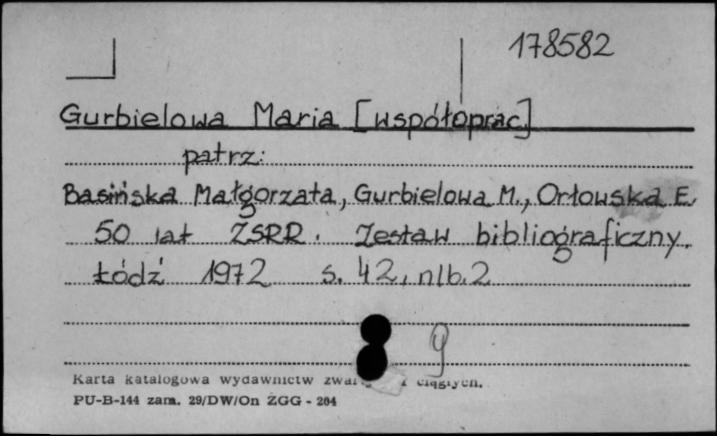 178582
Gurbielowa Maria [współoprac]
patrz:
Basińska Małgorzata, Gurbielowa M., Orłowska E.
50 lat ZSRR. Zestaw bibliograficzny.
Łódź 1972 s. 42, nlb. 2
9
Karta katalogowa wydawnictw ciągłych.
PU-B-144 zam. 29/DW/On ZGG - 264